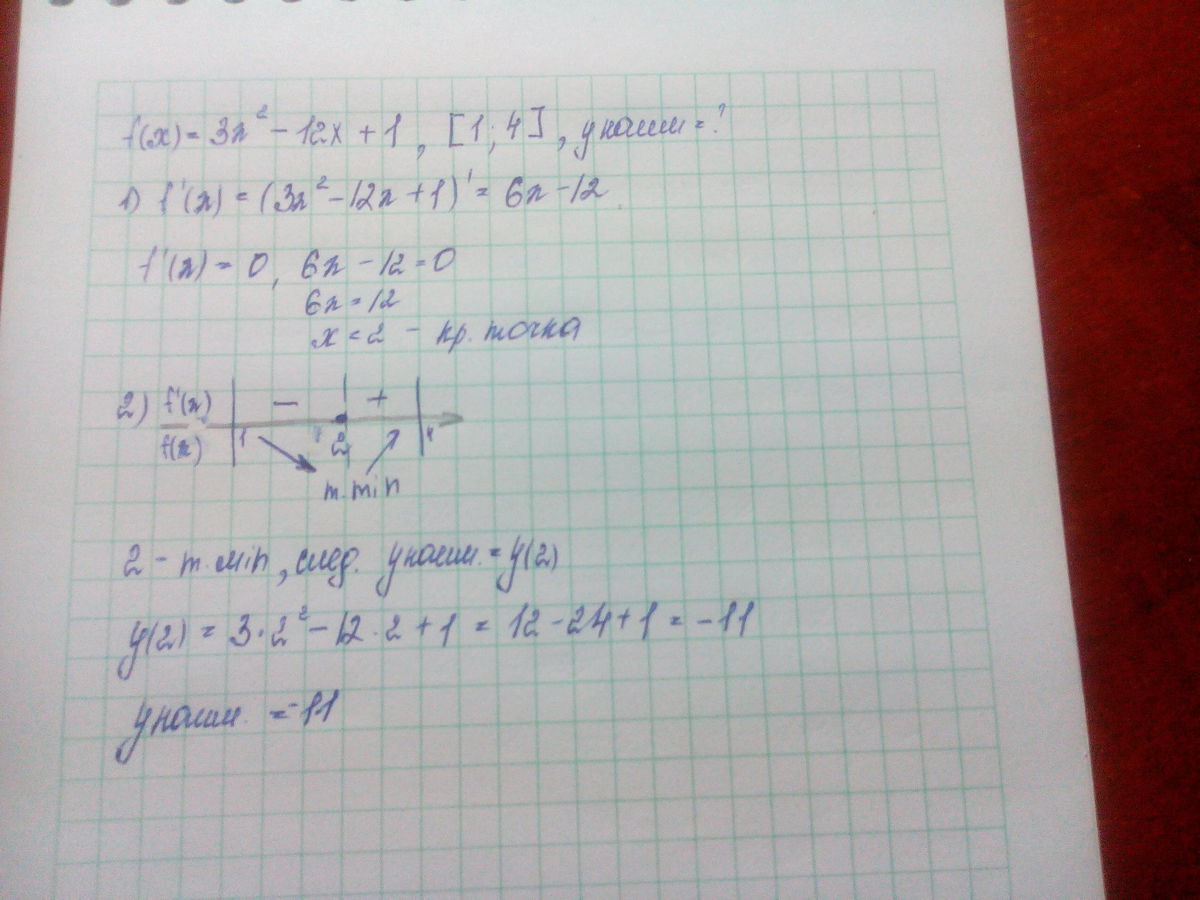 f(x) = 3x² - 12x + 1, [1; 4], y наим = ?
1) f'(x) = (3x² - 12x + 1)' = 6x - 12
f'(x) = 0, 6x - 12 = 0
6x = 12
x = 2 - кр. точка
2) f'(x) - +
f(x) 1 2 4
т. min
2 - т. min, след. y наим. = y(2)
y(2) = 3·2² - 12·2 + 1 = 12 - 24 + 1 = -11
y наим. = -11